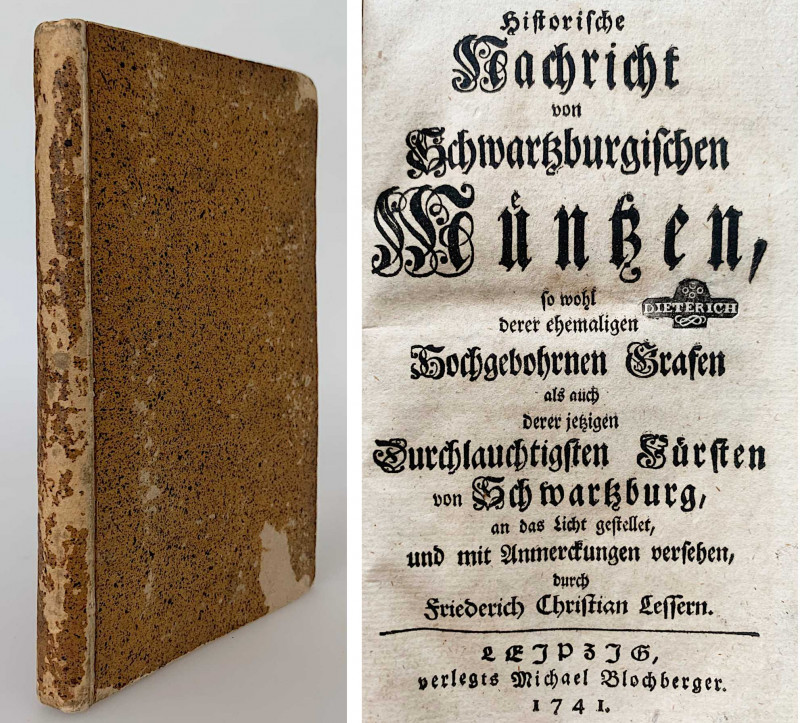 Historische
Nachricht
von
Schwartzburgischen
Müntzen,
so wohl
derer ehemaligen
DIETERICH
Hochgebohrnen Grafen
als auch
derer jetzigen
Durchlauchtigsten Fürsten
von Schwartzburg,
an das Licht gestellet,
und mit Anmerckungen versehen,
durch
Friederich Christian Lessern.
LEJPZJG,
verlegts Michael Blochberger.
1741.